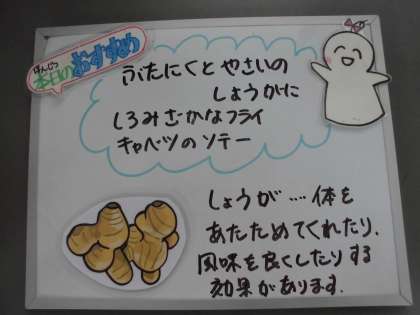 ほんじつ
本日のおすすめ
ぶたにくとやさいの
しょうがに
しろみざかなフライ
キャベツのソテー
しょうが…・体を
あたためてくれたり、
風味を良くしたりする
効果があります。